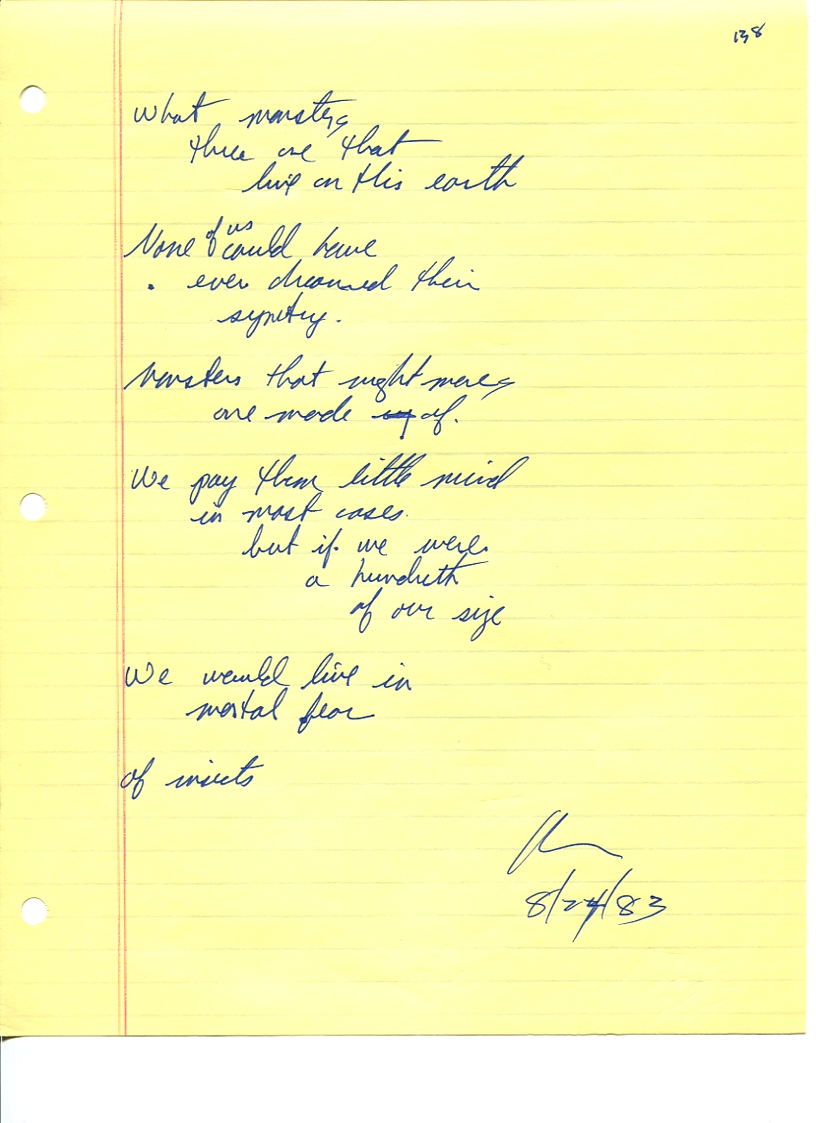 138
What monsters
there are that
live on this earth
None of us could have
. ever dreamed their
symetry.
Monsters that nightmares
are made of.
We pay them little mind
in most cases.
but if we were
a hundreth
of our size
We would live in
mortal fear
of insects
8/24/83